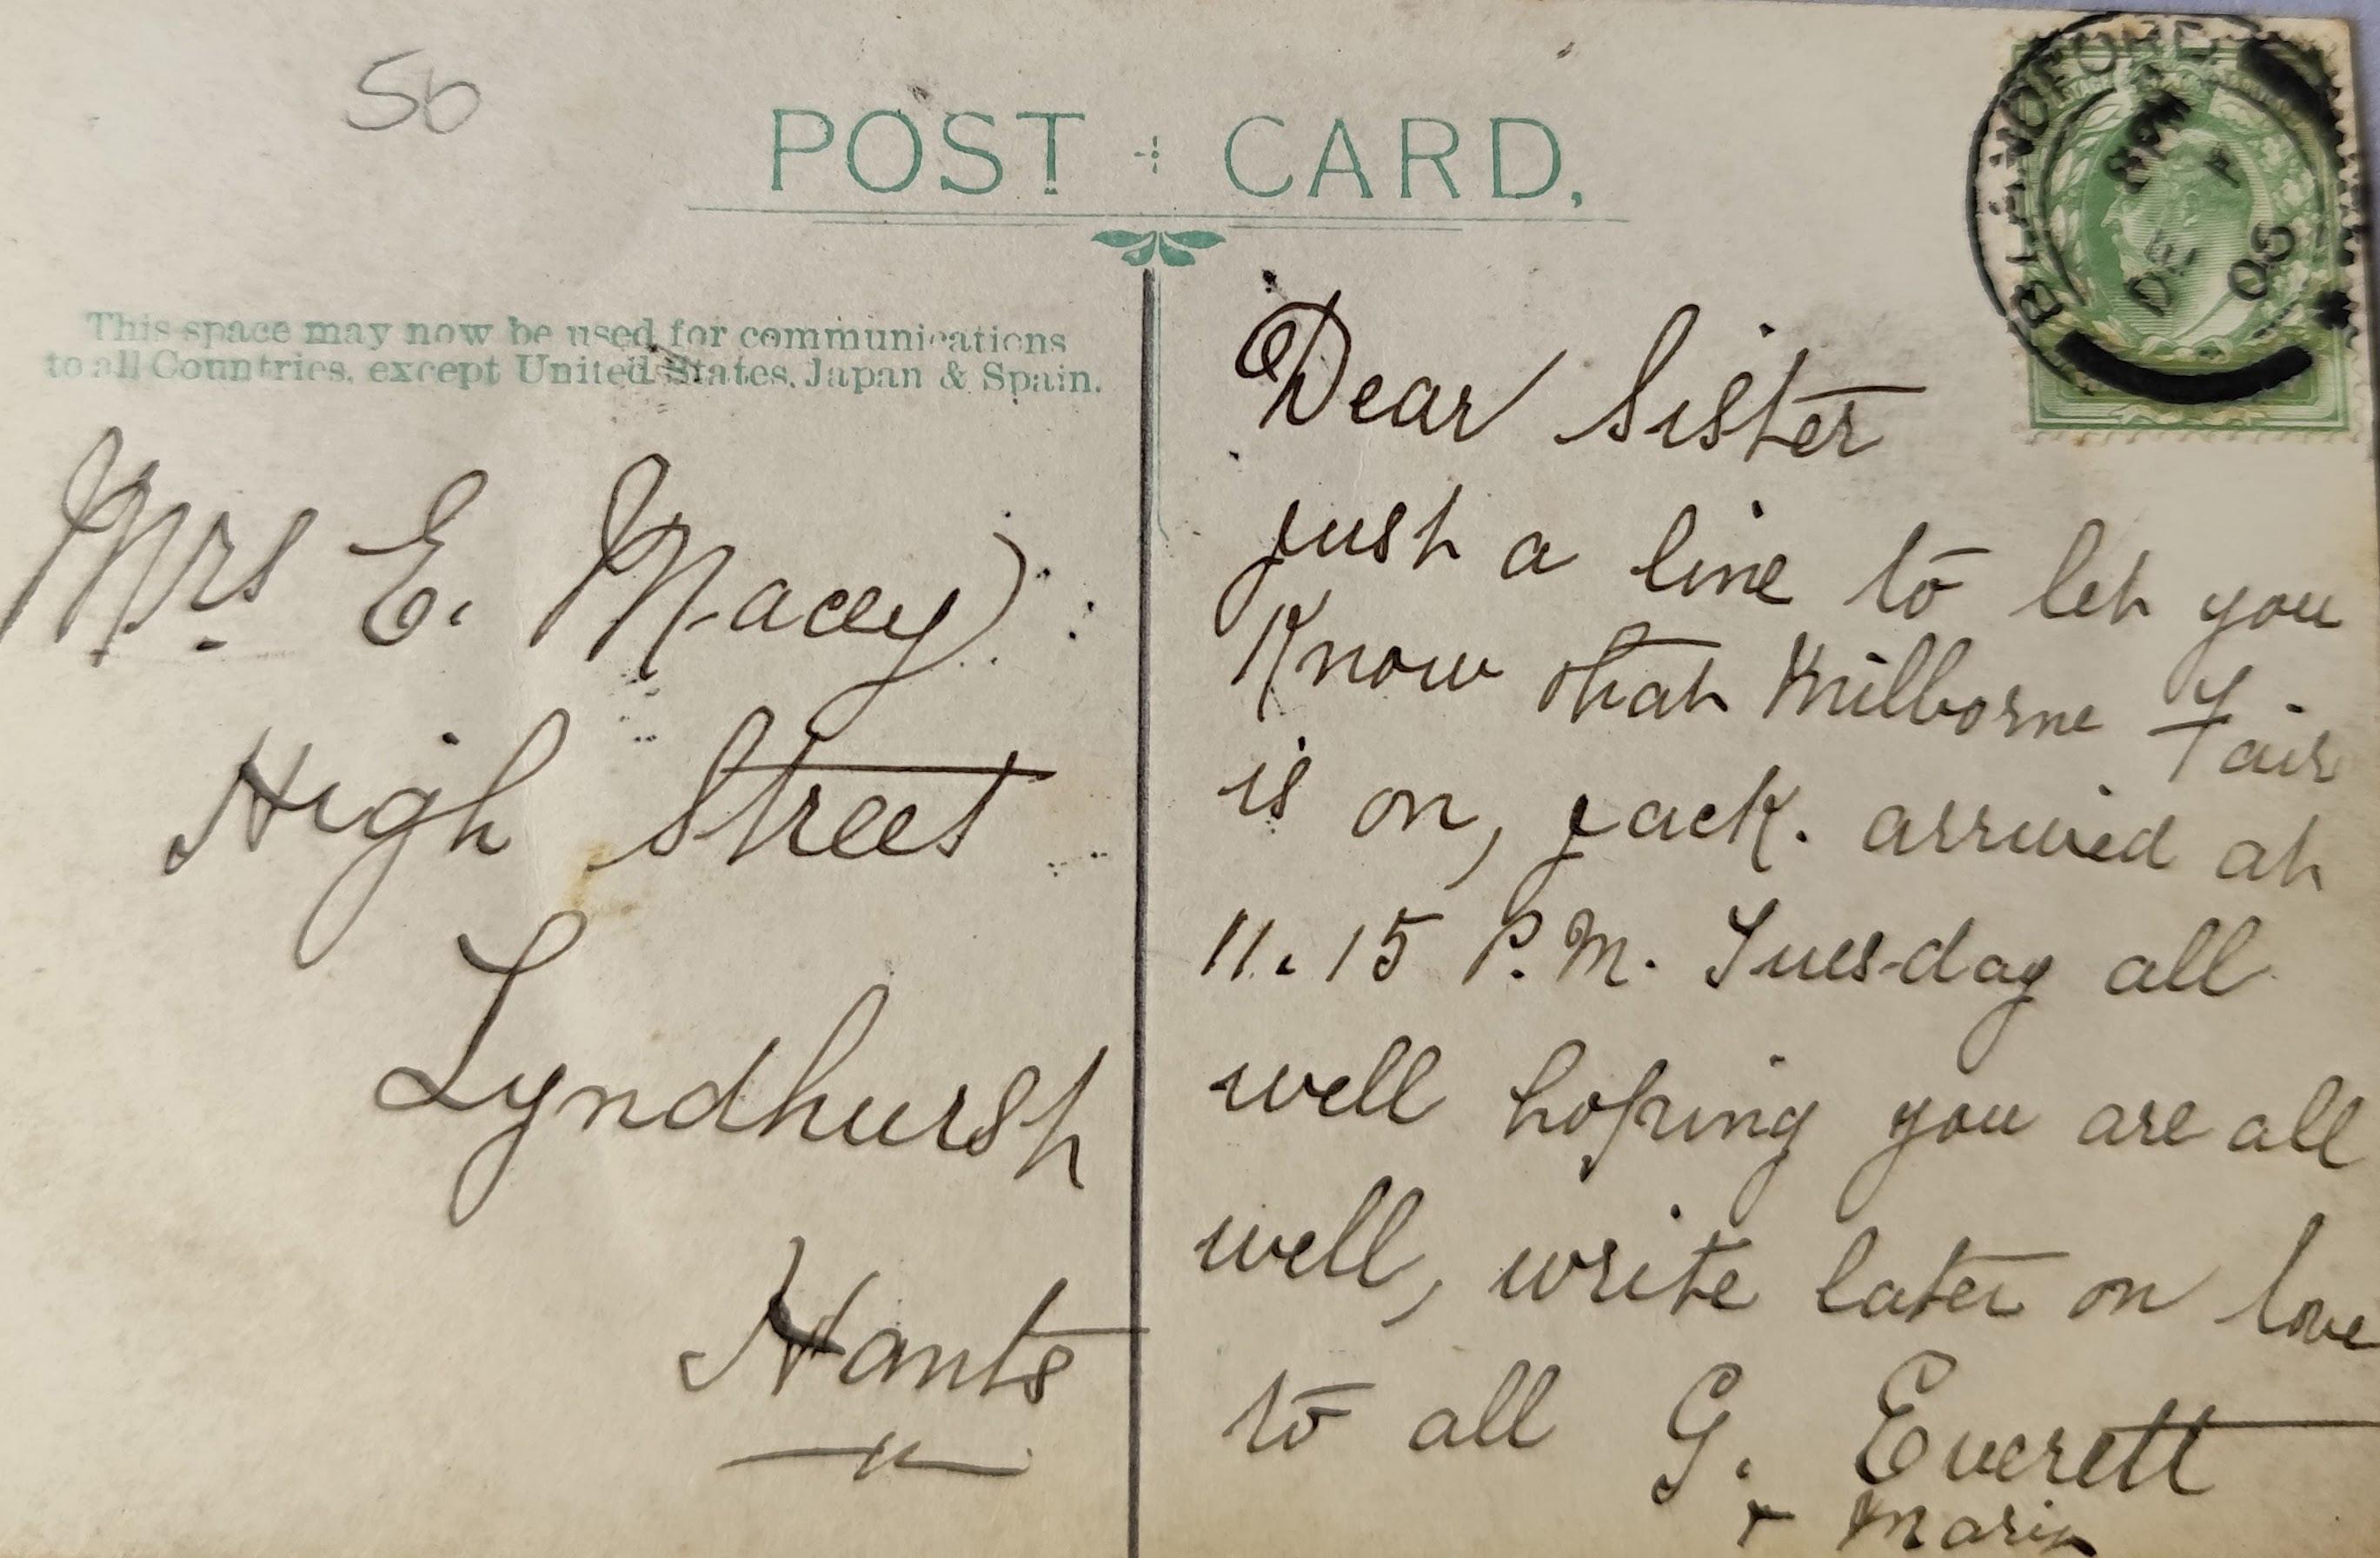 50
POST CARD.
This space may now be used for communications
to all Countries, except United States, Japan & Spain.
Mrs E. Macey
High Street
Lyndhurst
Hants
Dear Sister
just a line to let you
Know that Milborne Fair
is on, Jack. arrived at
11.15 P.M. Tuesday all
well hoping you are all
well, write later on love
to all G. Everett
+ Marie
BLANDFORD
DE
05